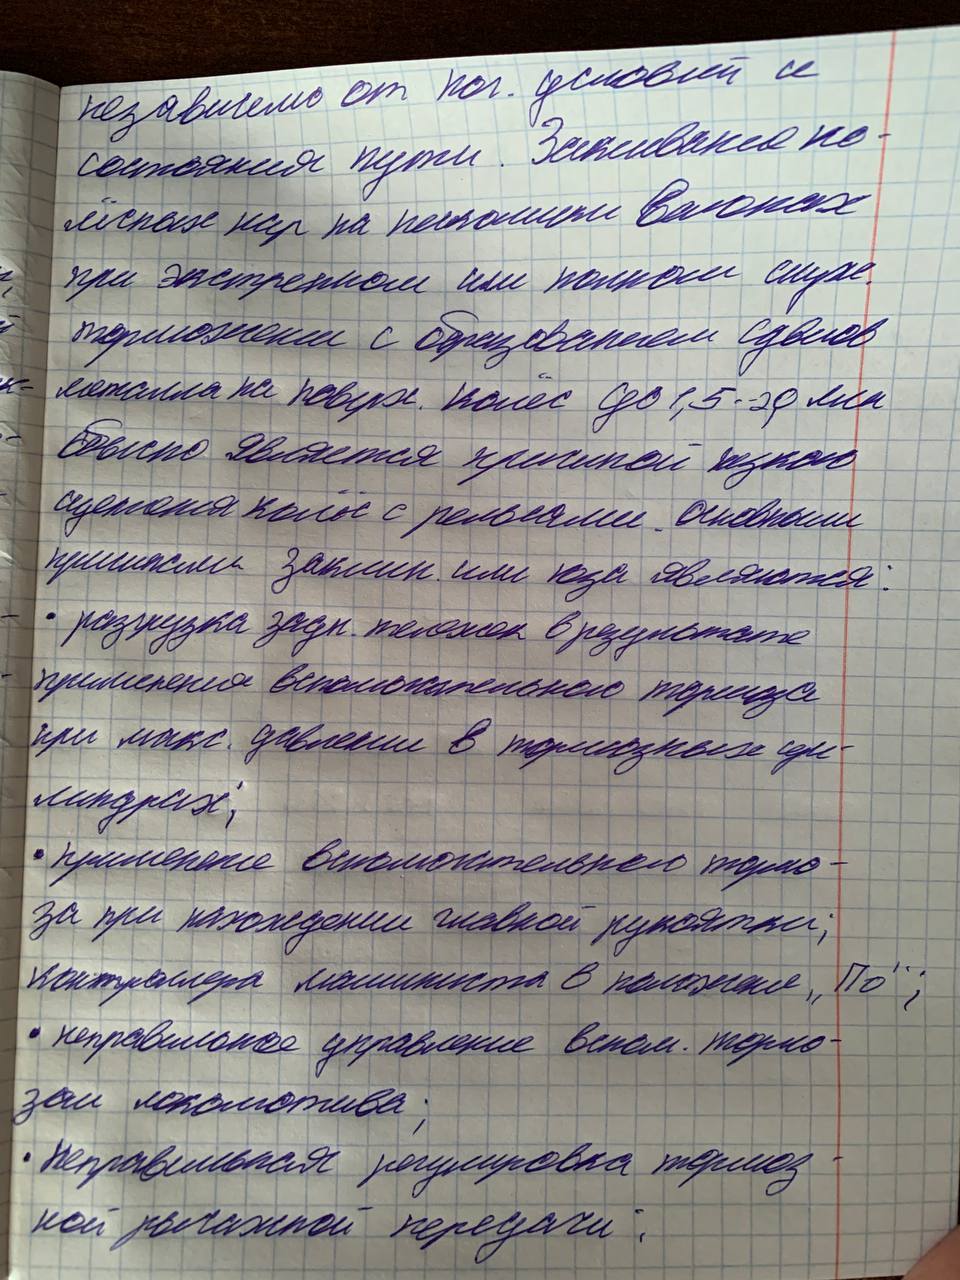 независимо от пог. условий и
состояния пути. Заклинвание ко-
лёсных пар на нескольких вагонах
при экстренном или полном служ.
торможении с образованием сдвигов
металла на поверх. колёс до 1,5-20 мм
обычно является причиной низкого
сцепления колёс с рельсами. Основными
причинами заклин. или юза являются:
• разгрузка задн. тележек в результате
применения вспомогательного тормоза
при макс. давлении в тормозных ци-
линдрах;
• применение вспомогательного тормо-
за при нахождении главной рукоятки;
контроллера машиниста в положение „По";
• неправильное управление вспом. тормо-
зом локомотива;
• неправильная регулировка тормоз-
ной рычажной передачи;